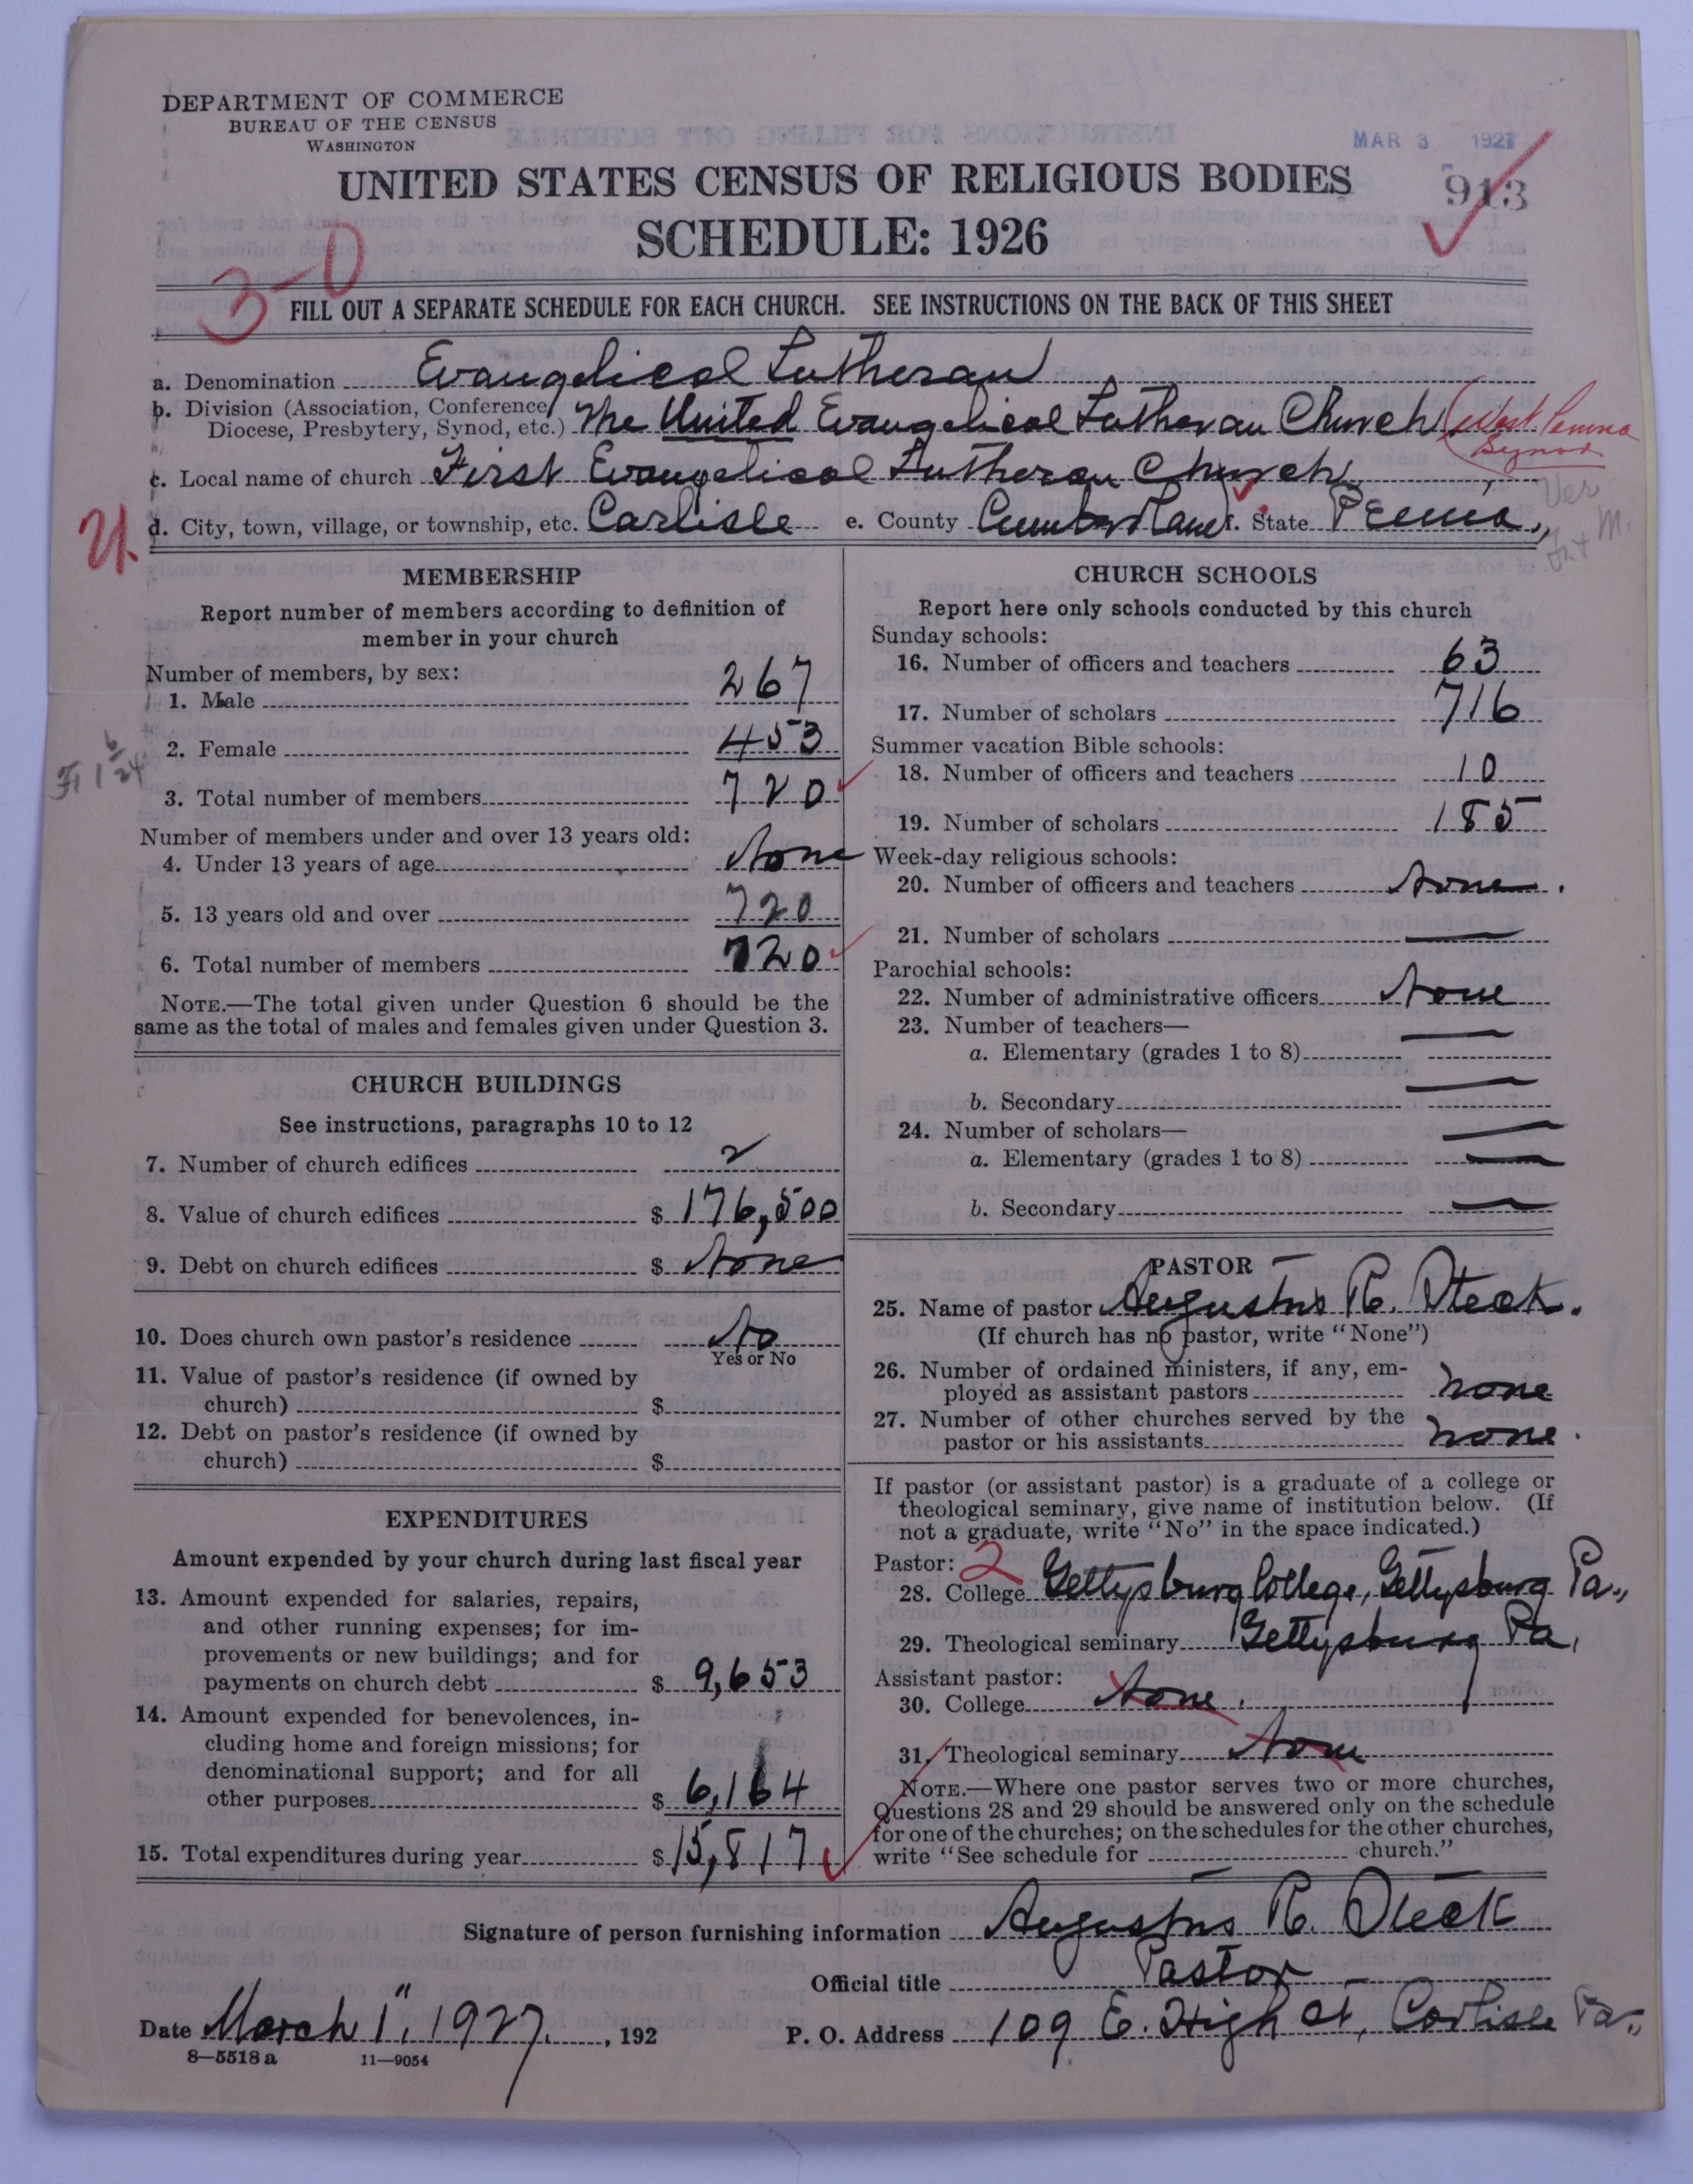 DEPARTMENT OF COMMERCE
BUREAU OF THE CENSUS
WASHINGTON
MAR 3 1927
UNITED STATES CENSUS OF RELIGIOUS BODIES
913
SCHEDULE: 1926
3-0
FILL OUT A SEPARATE SCHEDULE FOR EACH CHURCH. SEE INSTRUCTIONS ON THE BACK OF THIS SHEET
a. Denomination Evangelical Lutheran
b. Division (Association, Conference, Diocese, Presbytery, Synod, etc.) The United Evangelical Lutheran Church (West Penna Synod
c. Local name of church First Evangelical Lutheran Church
d. City, town, village, or township, etc. Carlisle e. County Cumberland f. State Penna,
MEMBERSHIP
Report number of members according to definition of
member in your church
Number of members, by sex:
1. Male 267
2. Female 453
3. Total number of members 720
Number of members under and over 13 years old:
4. Under 13 years of age None
5. 13 years old and over 720
6. Total number of members 720
NOTE.—The total given under Question 6 should be the
same as the total of males and females given under Question 3.
CHURCH BUILDINGS
See instructions, paragraphs 10 to 12
7. Number of church edifices 2
8. Value of church edifices $ 176,500
9. Debt on church edifices $ None
10. Does church own pastor's residence No
Yes or No
11. Value of pastor's residence (if owned by
church) $
12. Debt on pastor's residence (if owned by
church) $
EXPENDITURES
Amount expended by your church during last fiscal year
13. Amount expended for salaries, repairs,
and other running expenses; for im-
provements or new buildings; and for
payments on church debt $ 9,653
14. Amount expended for benevolences, in-
cluding home and foreign missions; for
denominational support; and for all
other purposes $ 6,164
15. Total expenditures during year $ 15,817
CHURCH SCHOOLS
Report here only schools conducted by this church
Sunday schools:
16. Number of officers and teachers 63
17. Number of scholars 716
Summer vacation Bible schools:
18. Number of officers and teachers 10
19. Number of scholars 185
Week-day religious schools:
20. Number of officers and teachers None.
21. Number of scholars —
Parochial schools:
22. Number of administrative officers None
23. Number of teachers— —
a. Elementary (grades 1 to 8)
b. Secondary —
24. Number of scholars— —
a. Elementary (grades 1 to 8) —
b. Secondary —
PASTOR
25. Name of pastor Augustus R. Steck.
(If church has no pastor, write "None")
26. Number of ordained ministers, if any, em-
ployed as assistant pastors none
27. Number of other churches served by the
pastor or his assistants none.
If pastor (or assistant pastor) is a graduate of a college or
theological seminary, give name of institution below. (If
not a graduate, write "No" in the space indicated.)
Pastor: 2
28. College Gettysburg College, Gettysburg Pa.,
29. Theological seminary Gettysburg Pa,
Assistant pastor:
30. College None.
31. Theological seminary None
NOTE.—Where one pastor serves two or more churches,
Questions 28 and 29 should be answered only on the schedule
for one of the churches; on the schedules for the other churches,
write "See schedule for church."
Signature of person furnishing information Augustus R. Steck
Official title Pastor
Date March 1", 1927., 192 P. O. Address 109 E. High St, Carlisle Pa.,
8—5518 a 11—9054